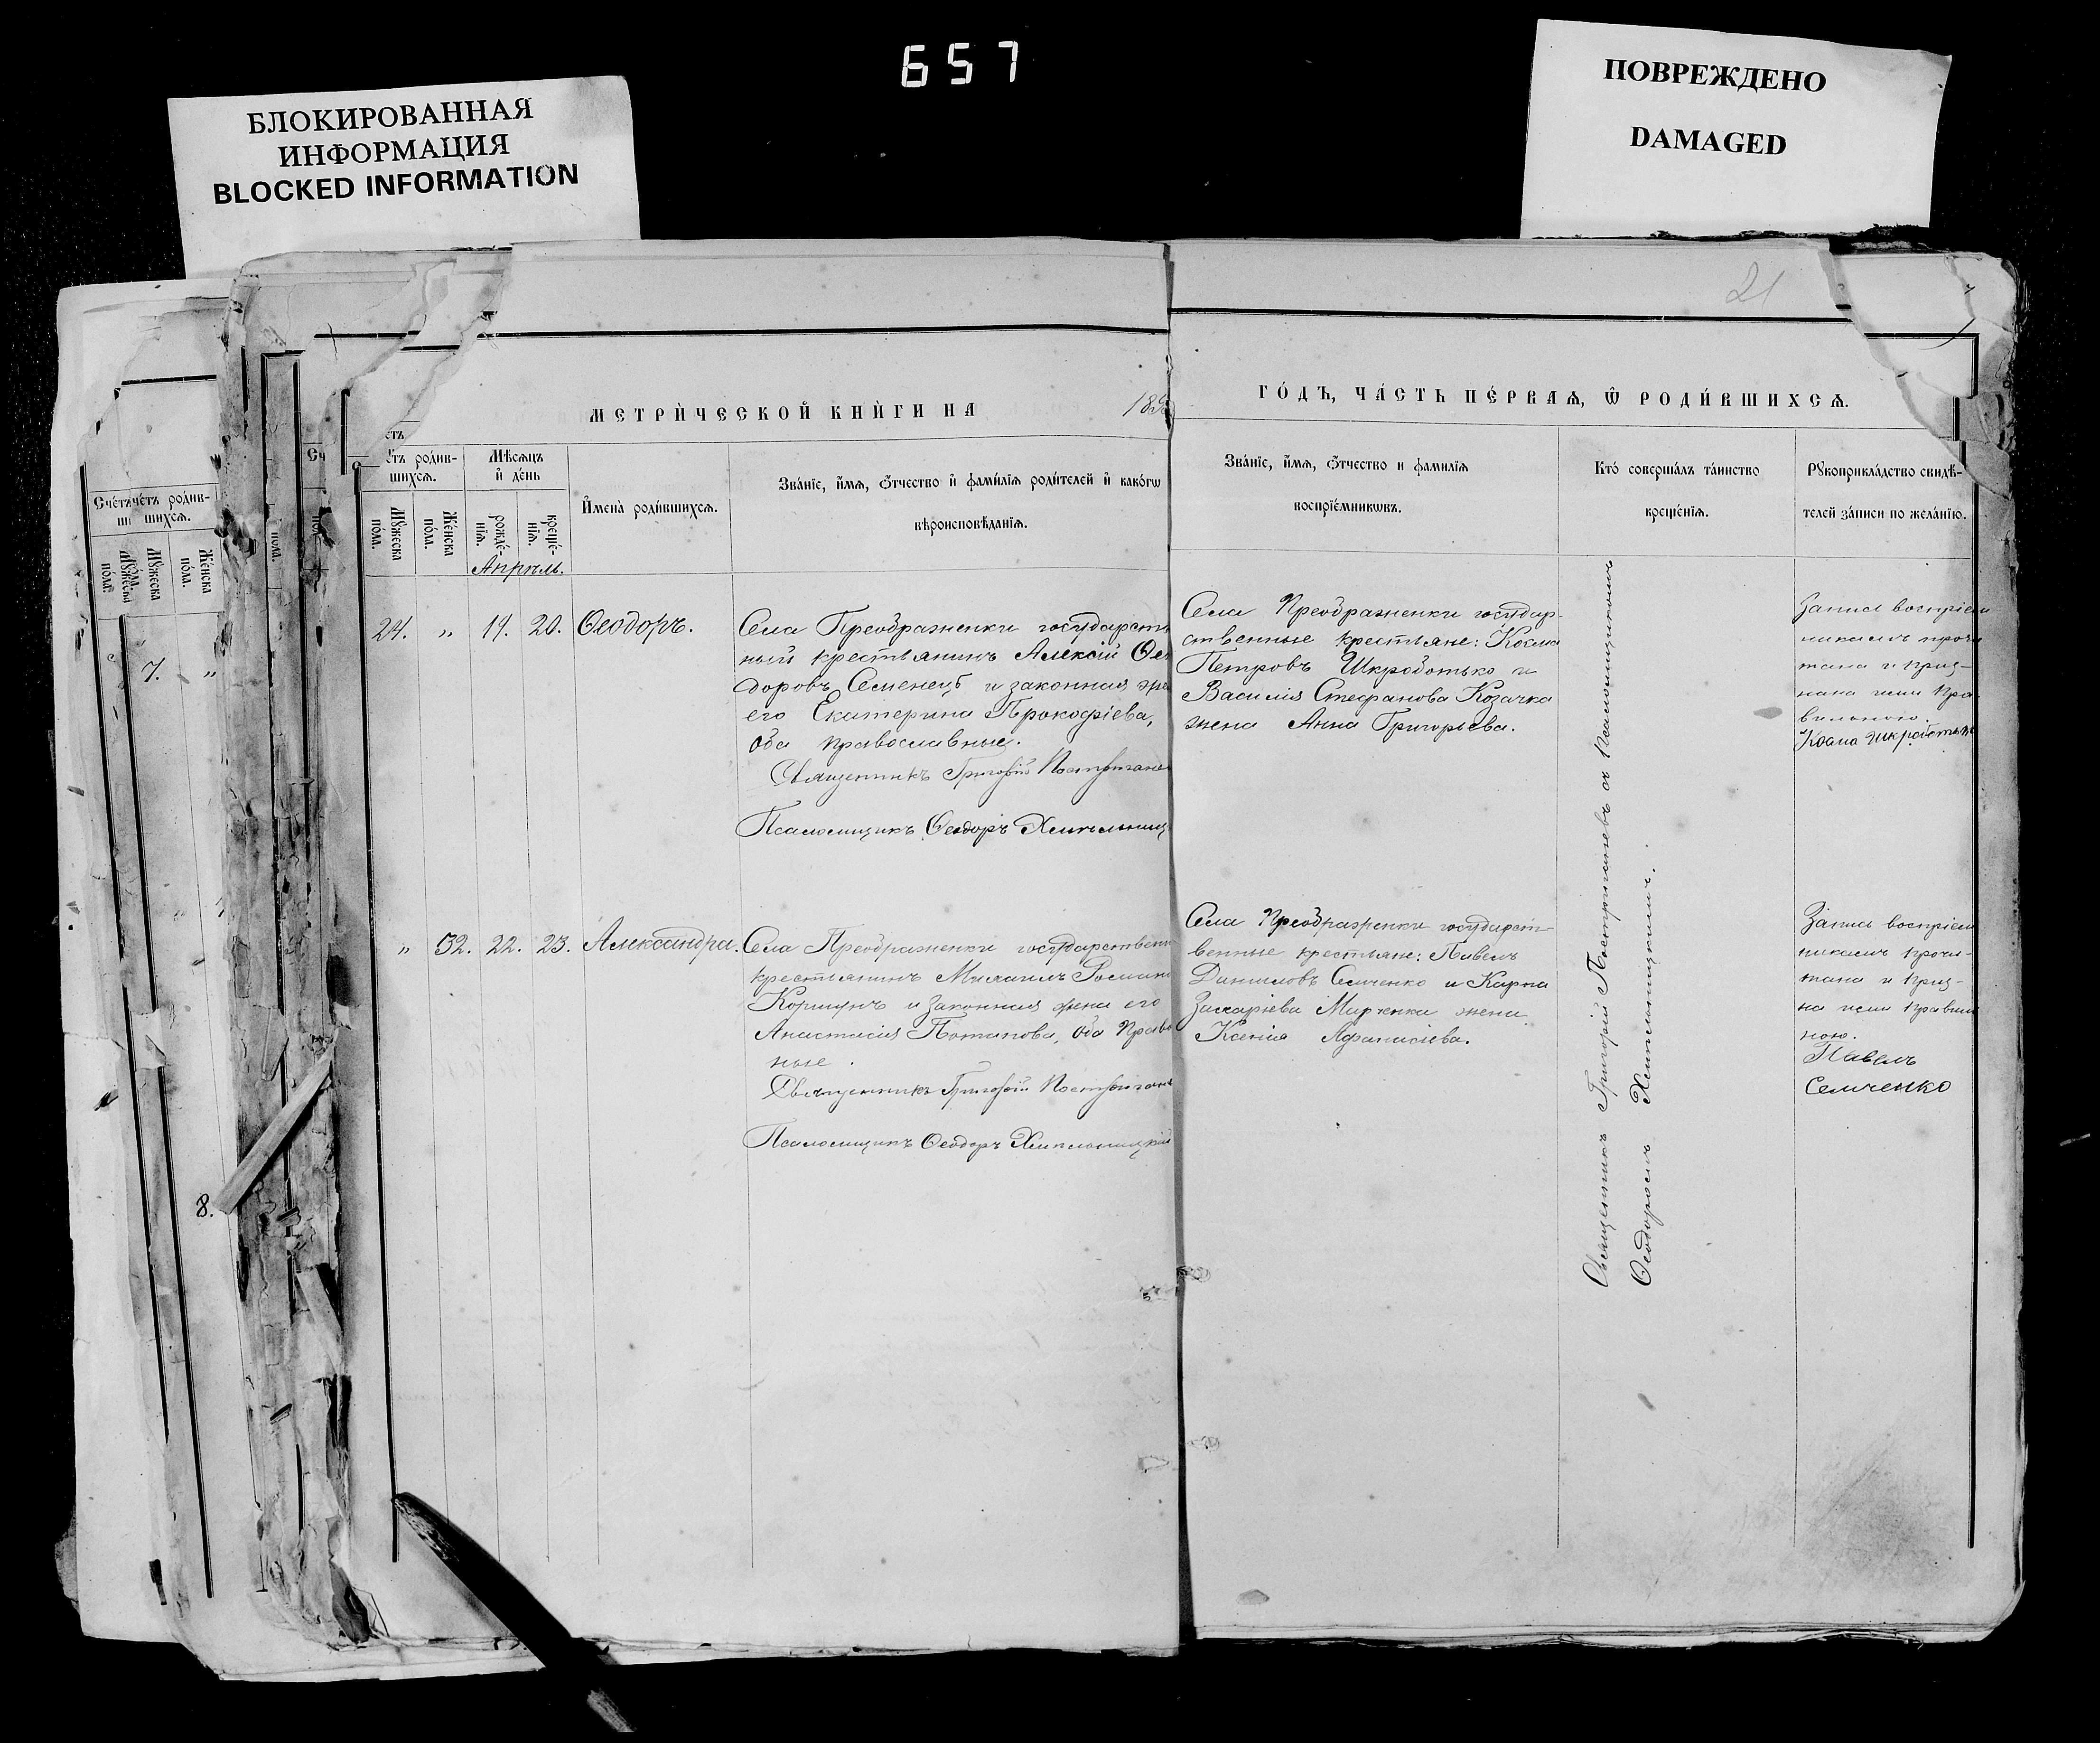 657
БЛОКИРОВАННАЯ
ИНФОРМАЦИЯ
BLOCKED INFORMATION
ПОВРЕЖДЕНО
DAMAGED
21
МЕТРИ́ЧЕСКОЙ КНИ́ГИ НА 188
ГО́ДЪ, ЧА́СТЬ ПЕ́РВАЯ, Ѿ РОДИ́ВШИХСЯ.
Счетъ родив-
шихся.
Мѣсяцъ
и҆ де́нь
Мꙋжеска
пола.
Же́нска
пола.
рожде́-
нїя.
креще́-
нїя.
И҆мена̀ роди́вшихся.
Зва́нїе, и҆́мя, ѻ҆́тчество и҆ фами́лїя роди́телей и҆ како́гѡ
вѣроисповѣ́данїя.
Зва́нїе, и҆́мя, ѻ҆́тчество и фамилїя
воспрїе́мникѡвъ.
Кто́ соверша́лъ та́инство
креще́нїя.
Рꙋкоприкла́дство свидѣ́-
телей за́писи по жела́нїю.
Апрѣль.
24. „ 19. 20. Ѳеодоръ.
Села Преображенки государствен
ный крестьянинъ Алексій Ѳео
доровъ Семенецъ и законная же
его Екатерина Прокофіева,
оба православные.
Священникъ Григорій Постригане
Псаломщикъ Ѳеодоръ Хмельниц
Села Преображенки государ-
ственные крестьяне: Косма
Петровъ Шкроботько и
Василія Стефанова Козачка
жена Анна Григорьева.
Запись воспріем
никамъ прочи
тана и приз-
нана ими пра
вильною.
Косма Шкроботько
„ 32. 22. 23. Александра.
Села Преображенки государствен
крестьянинъ Михаилъ Роман
Коршунъ и законная жена его
Анастасія Потапова, оба право
ные.
Священникъ Григорій Постриган
Псаломщикъ Ѳеодоръ Хмельницкій
Села Преображенки государст-
венные крестьяне: Павелъ
Даниловъ Семченко и Карпа
Захаріева жена
Ксенія Афанасіева.
Священникъ Григорій Постриганевъ съ Псаломщикомъ
Ѳеодоромъ Хмельницкимъ.
Запись воспріем
никамъ прочи-
тана и приз-
на ими правиль
ною.
Павелъ
Семченко
Счетъ родив-
шихся.
Мꙋжеска
пола.
Же́нска
пола.
7. „
8.